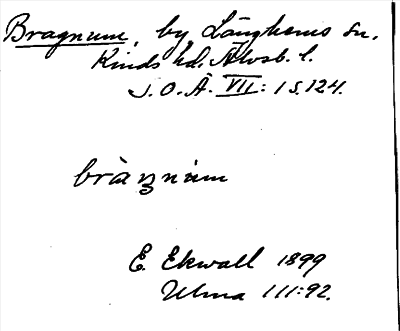 Bragnum, by Länghems sn.
Kinds hd. Älvsb. l.
S.O.Ä. VII: 1 s. 124.
bràŋnùm
E. Ekwall 1899
Ulma 111:92.